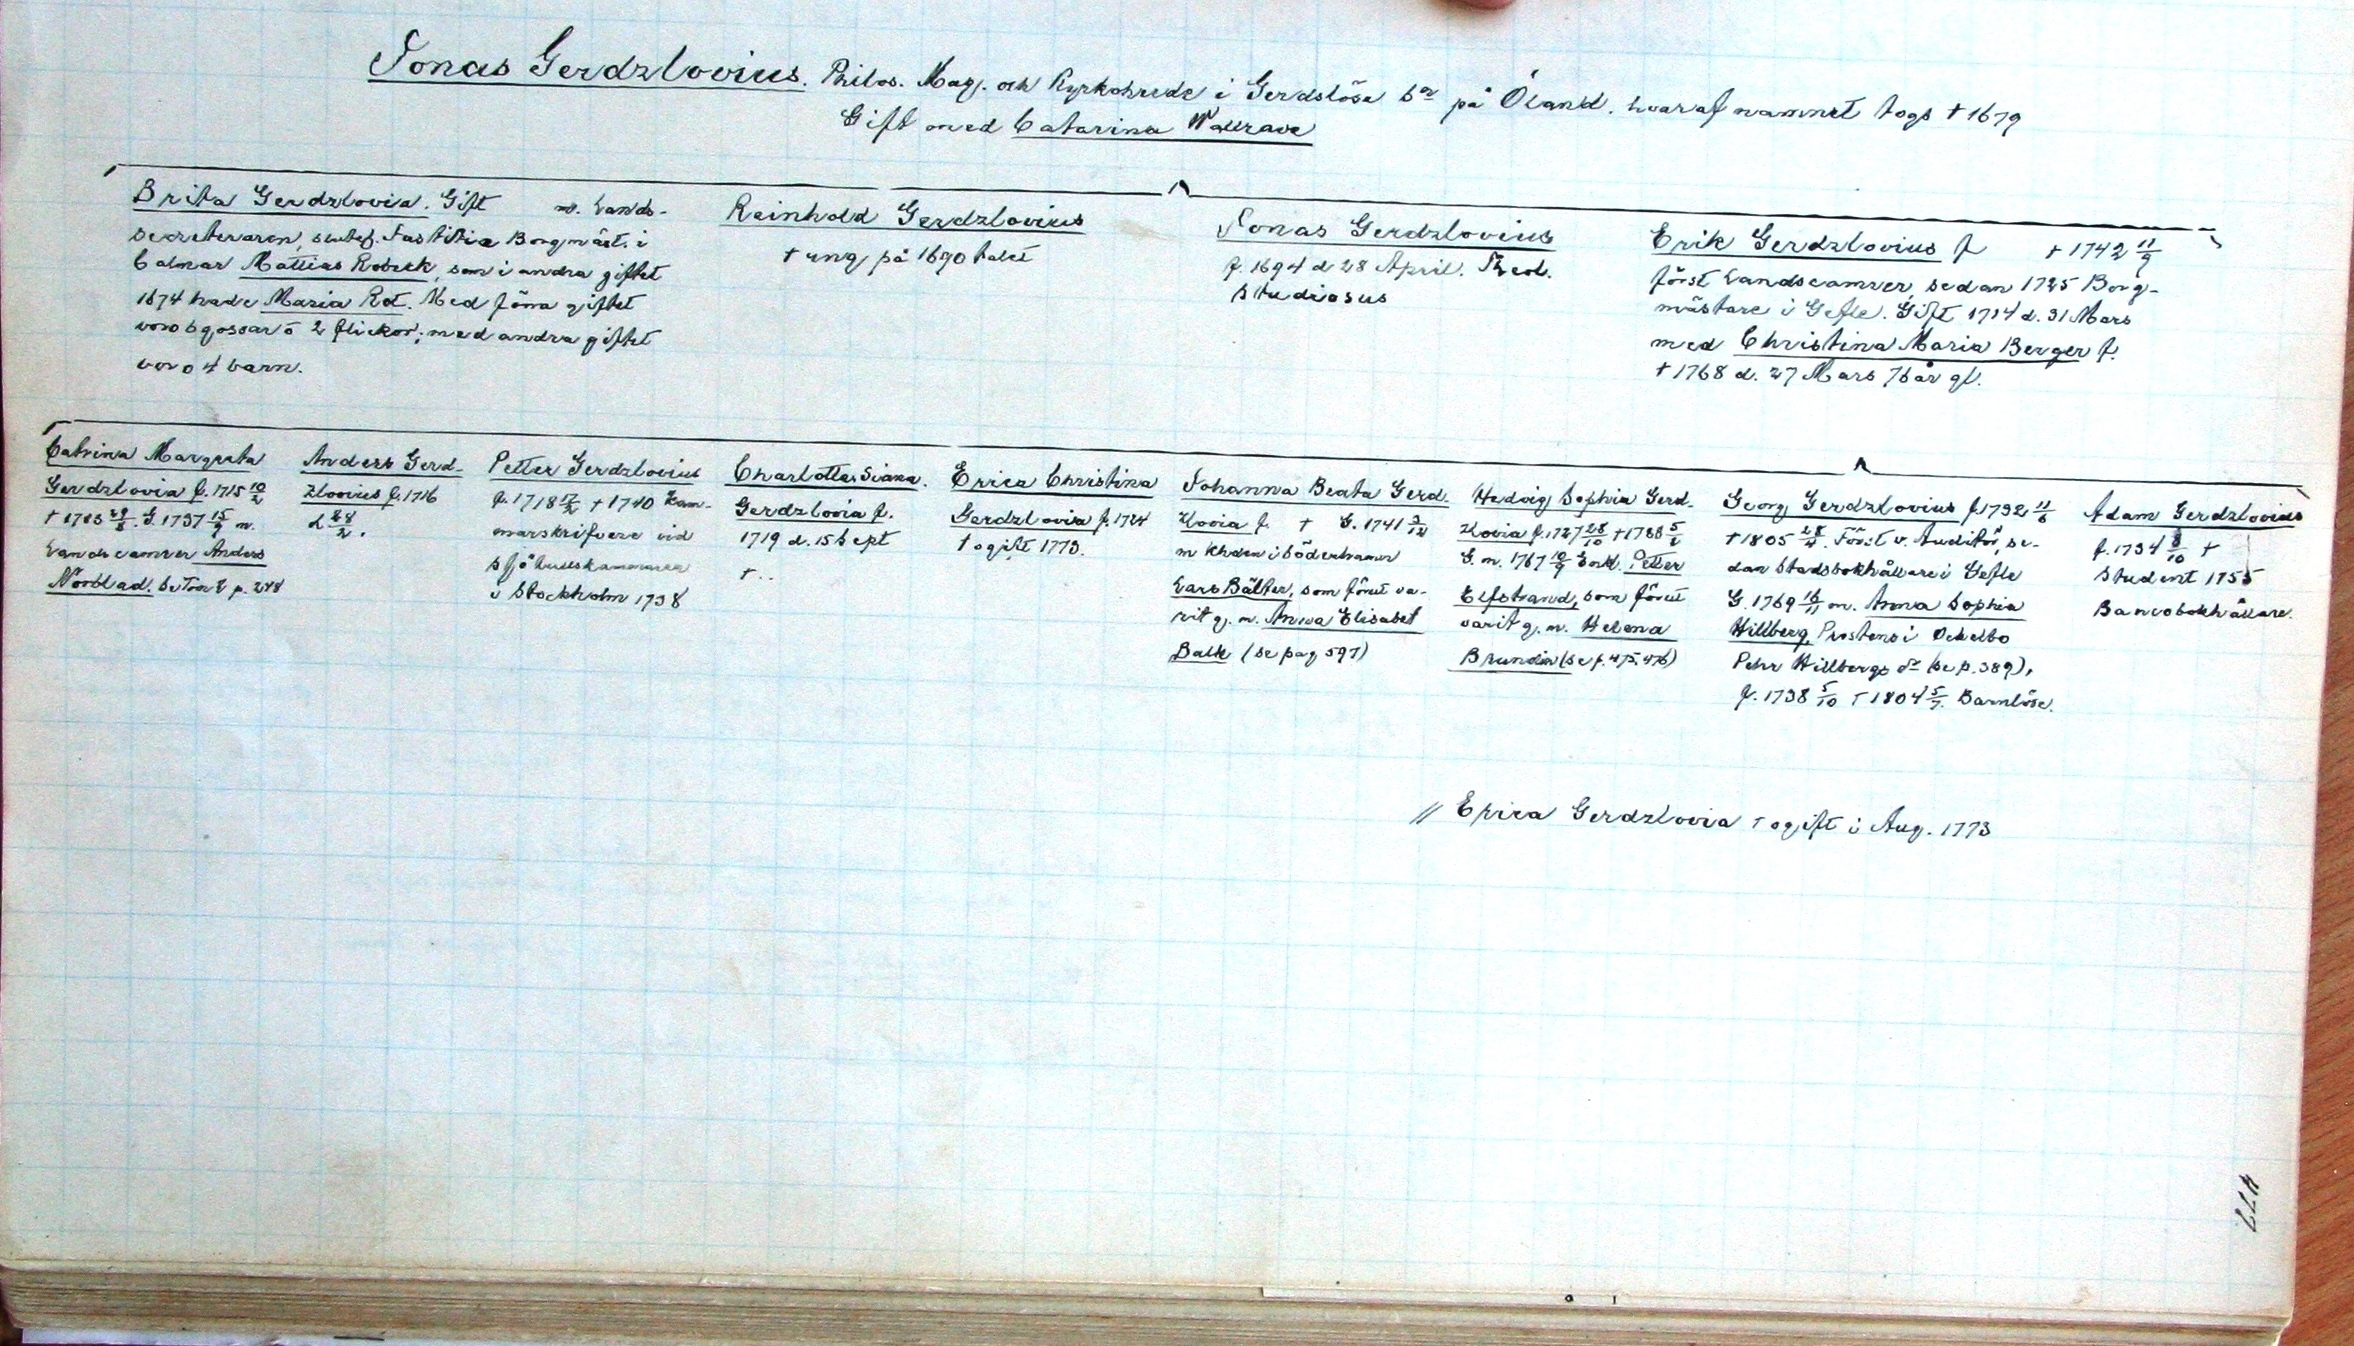 Jonas Gerdzlovius. Philos. Mag. och Kyrkohrede i Gerdslösa på Öland. hvaraf namnet togs † 1679
Gift med Catarina Wallrave
Brita Gerdzlovia. Gift m. Lands-
secreteraren, slutel. Justitiæ Borgmäst. i
Calmar Mattias Robeck, som i andra giftet
1674 hade Maria Rot. Med förra giftet
voro 6 gossar o 2 flickor; med andra giftet
voro 4 barn.
Reinhold Gerdzlovius
† ung på 1690 talet
Jonas Gerdzlovius
f. 1694 d 28 April. Theol.
Studiosus
Erik Gerdzlovius f † 1742 11/9
först Landscamrer, sedan 1725 Borg-
mästare i Gefle. Gift 1714 d. 31 Mars
med Christina Maria Berger f.
† 1768 d. 27 Mars, 76 år gl.
Catrina Margreta
Gerdzlovia f. 1715 10/2
† 1783 G. 1737 15/9 m.
Landscamrer Anders
Norblad. Se p. 248
Anders Gerd-
zlovius f. 1716
d 28/2.
Petter Gerdzlovius
f. 1718 † 1740 Kam-
marskrifvare vid
Sjötullskammaren
i Stockholm 1738
Charlotta Diana.
Gerdzlovia f.
1719 d. 15 Sept
† ..
Erica Christina
Gerdzlovia f. 1724
† ogift 1773.
Johanna Beata Gerd-
zlovia f. † G. 1741 3/12
m khden i Söderhamn
Lars Bälter, som förut va-
rit g. m. Anna Elisabet
Balk (se pag 597)
Hedvig Sophia Gerd-
zlovia f. 1727 28/10 † 1788
G. m. 1767 10/9 Petter
Elfstrand, som förut
varit g. m. Helena
Brundin (se p. 475, 476)
Georg Gerdzlovius f. 1732 11/6
† 1805 28/4. Först v. Auditör, se-
dan Stadsbokhållare i Gefle
G. 1769 16/11 m. Anna Sophia
Hillberg, Prostens i Ockelbo
Pehr Hillbergs dr (se p. 389),
f. 1738 5/10 † 1804 5/7. Barnlöse.
Adam Gerdzlovius
f. 1734 8/10 †
Student 1755
Bancobokhållare.
// Erica Gerdzlovia † ogift i Aug. 1773
477